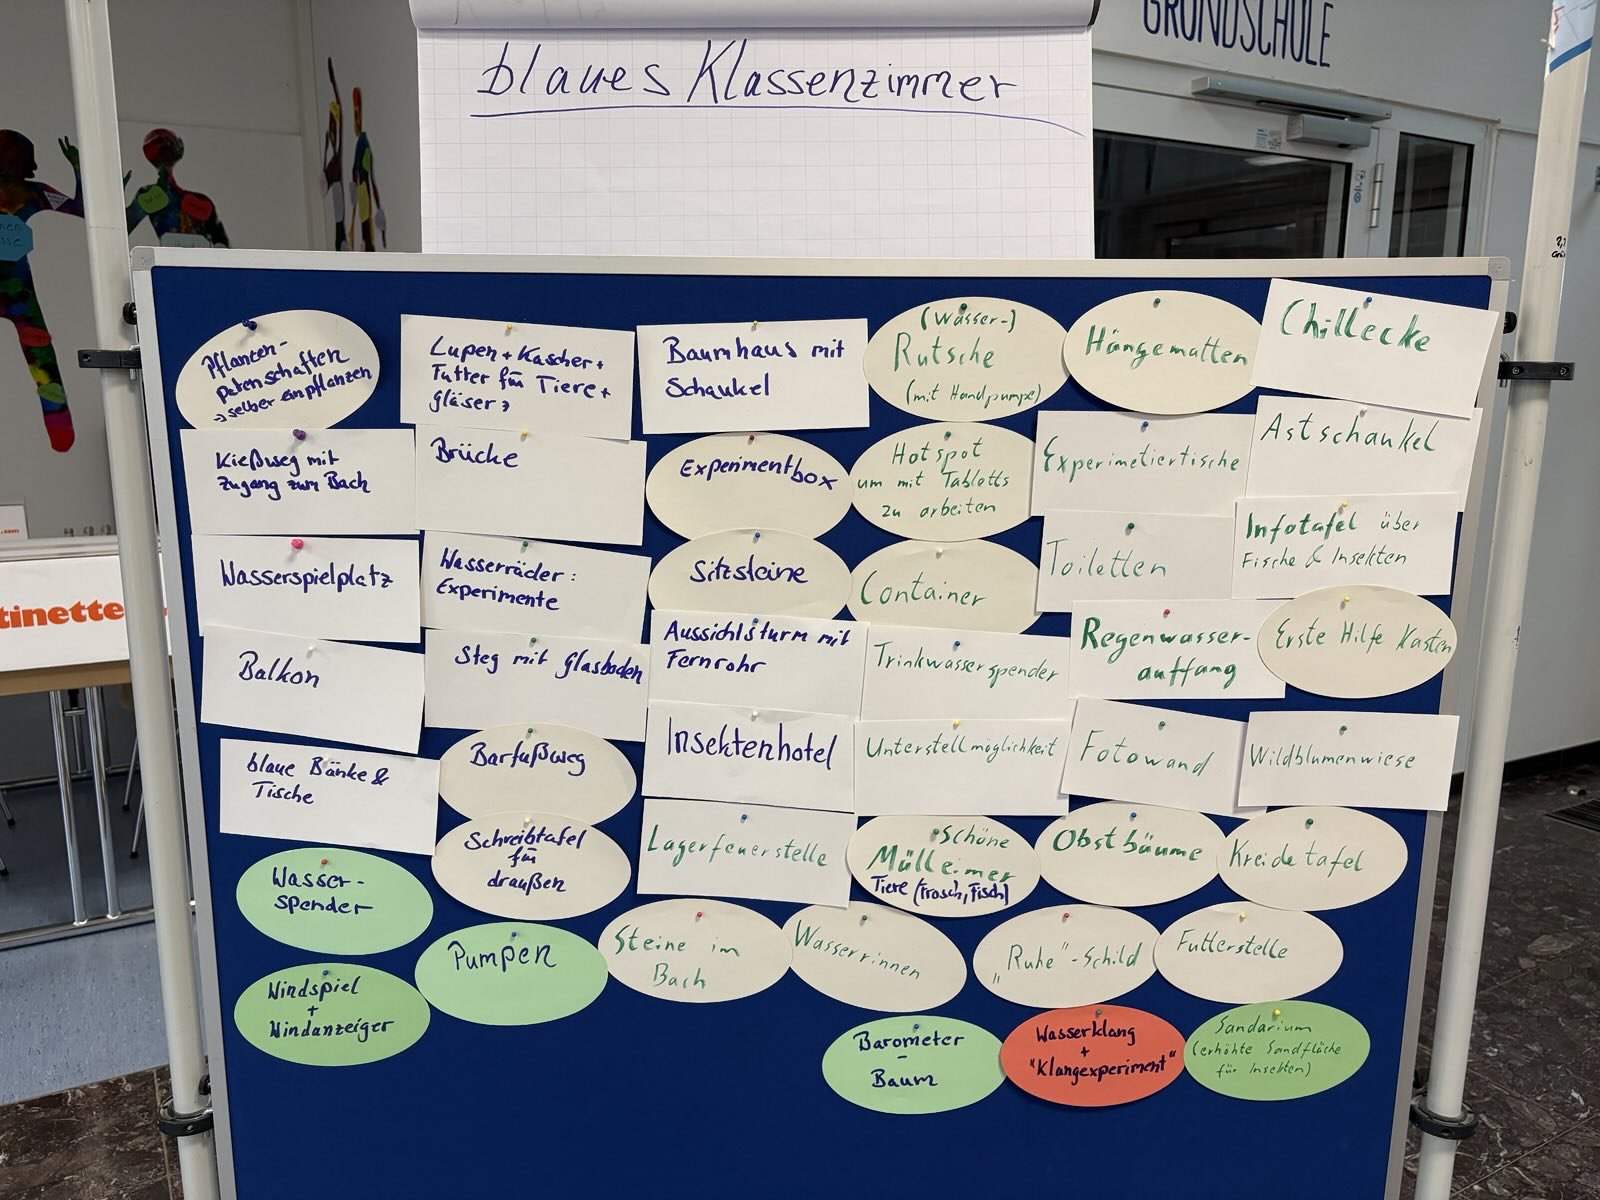 GRUNDSCHULE
blaues Klassenzimmer
Pflanzen-
patenschaften
→ selber einpflanzen
Lupen + Kascher +
Futter für Tiere +
gläser
Baumhaus mit
Schaukel
(Wasser-)
Rutsche
(mit Handpumpe)
Hängematten
Chillecke
Kießweg mit
zugang zum Bach
Brücke
Experimentbox
Hotspot
um mit Tabletts
zu arbeiten
Experimetiertische
Astschaukel
Wasserspielplatz
Wasserräder:
Experimente
Sitzsteine
Container
Toiletten
Infotafel über
Fische & Insekten
Balkon
Steg mit Glasboden
Aussichtsturm mit
Fernrohr
Trinkwasserspender
Regenwasser-
auffang
Erste Hilfe Kasten
blaue Bänke &
Tische
Barfußweg
Insektenhotel
Unterstellmöglichkeit
Fotowand
Wildblumenwiese
Wasser-
spender
Schreibtafel
für
draußen
Lagerfeuerstelle
Schöne
Mülleimer
Tiere (Frosch, Fisch)
Obstbäume
Kreidetafel
Windspiel
+
Windanzeiger
Pumpen
Steine im
Bach
Wasserrinnen
"Ruhe"-Schild
Futterstelle
Barometer
-
Baum
Wasserklang
+
"Klangexperiment"
Sandarium
(erhöhte Sandfläche
für Insekten)
tinette
.com